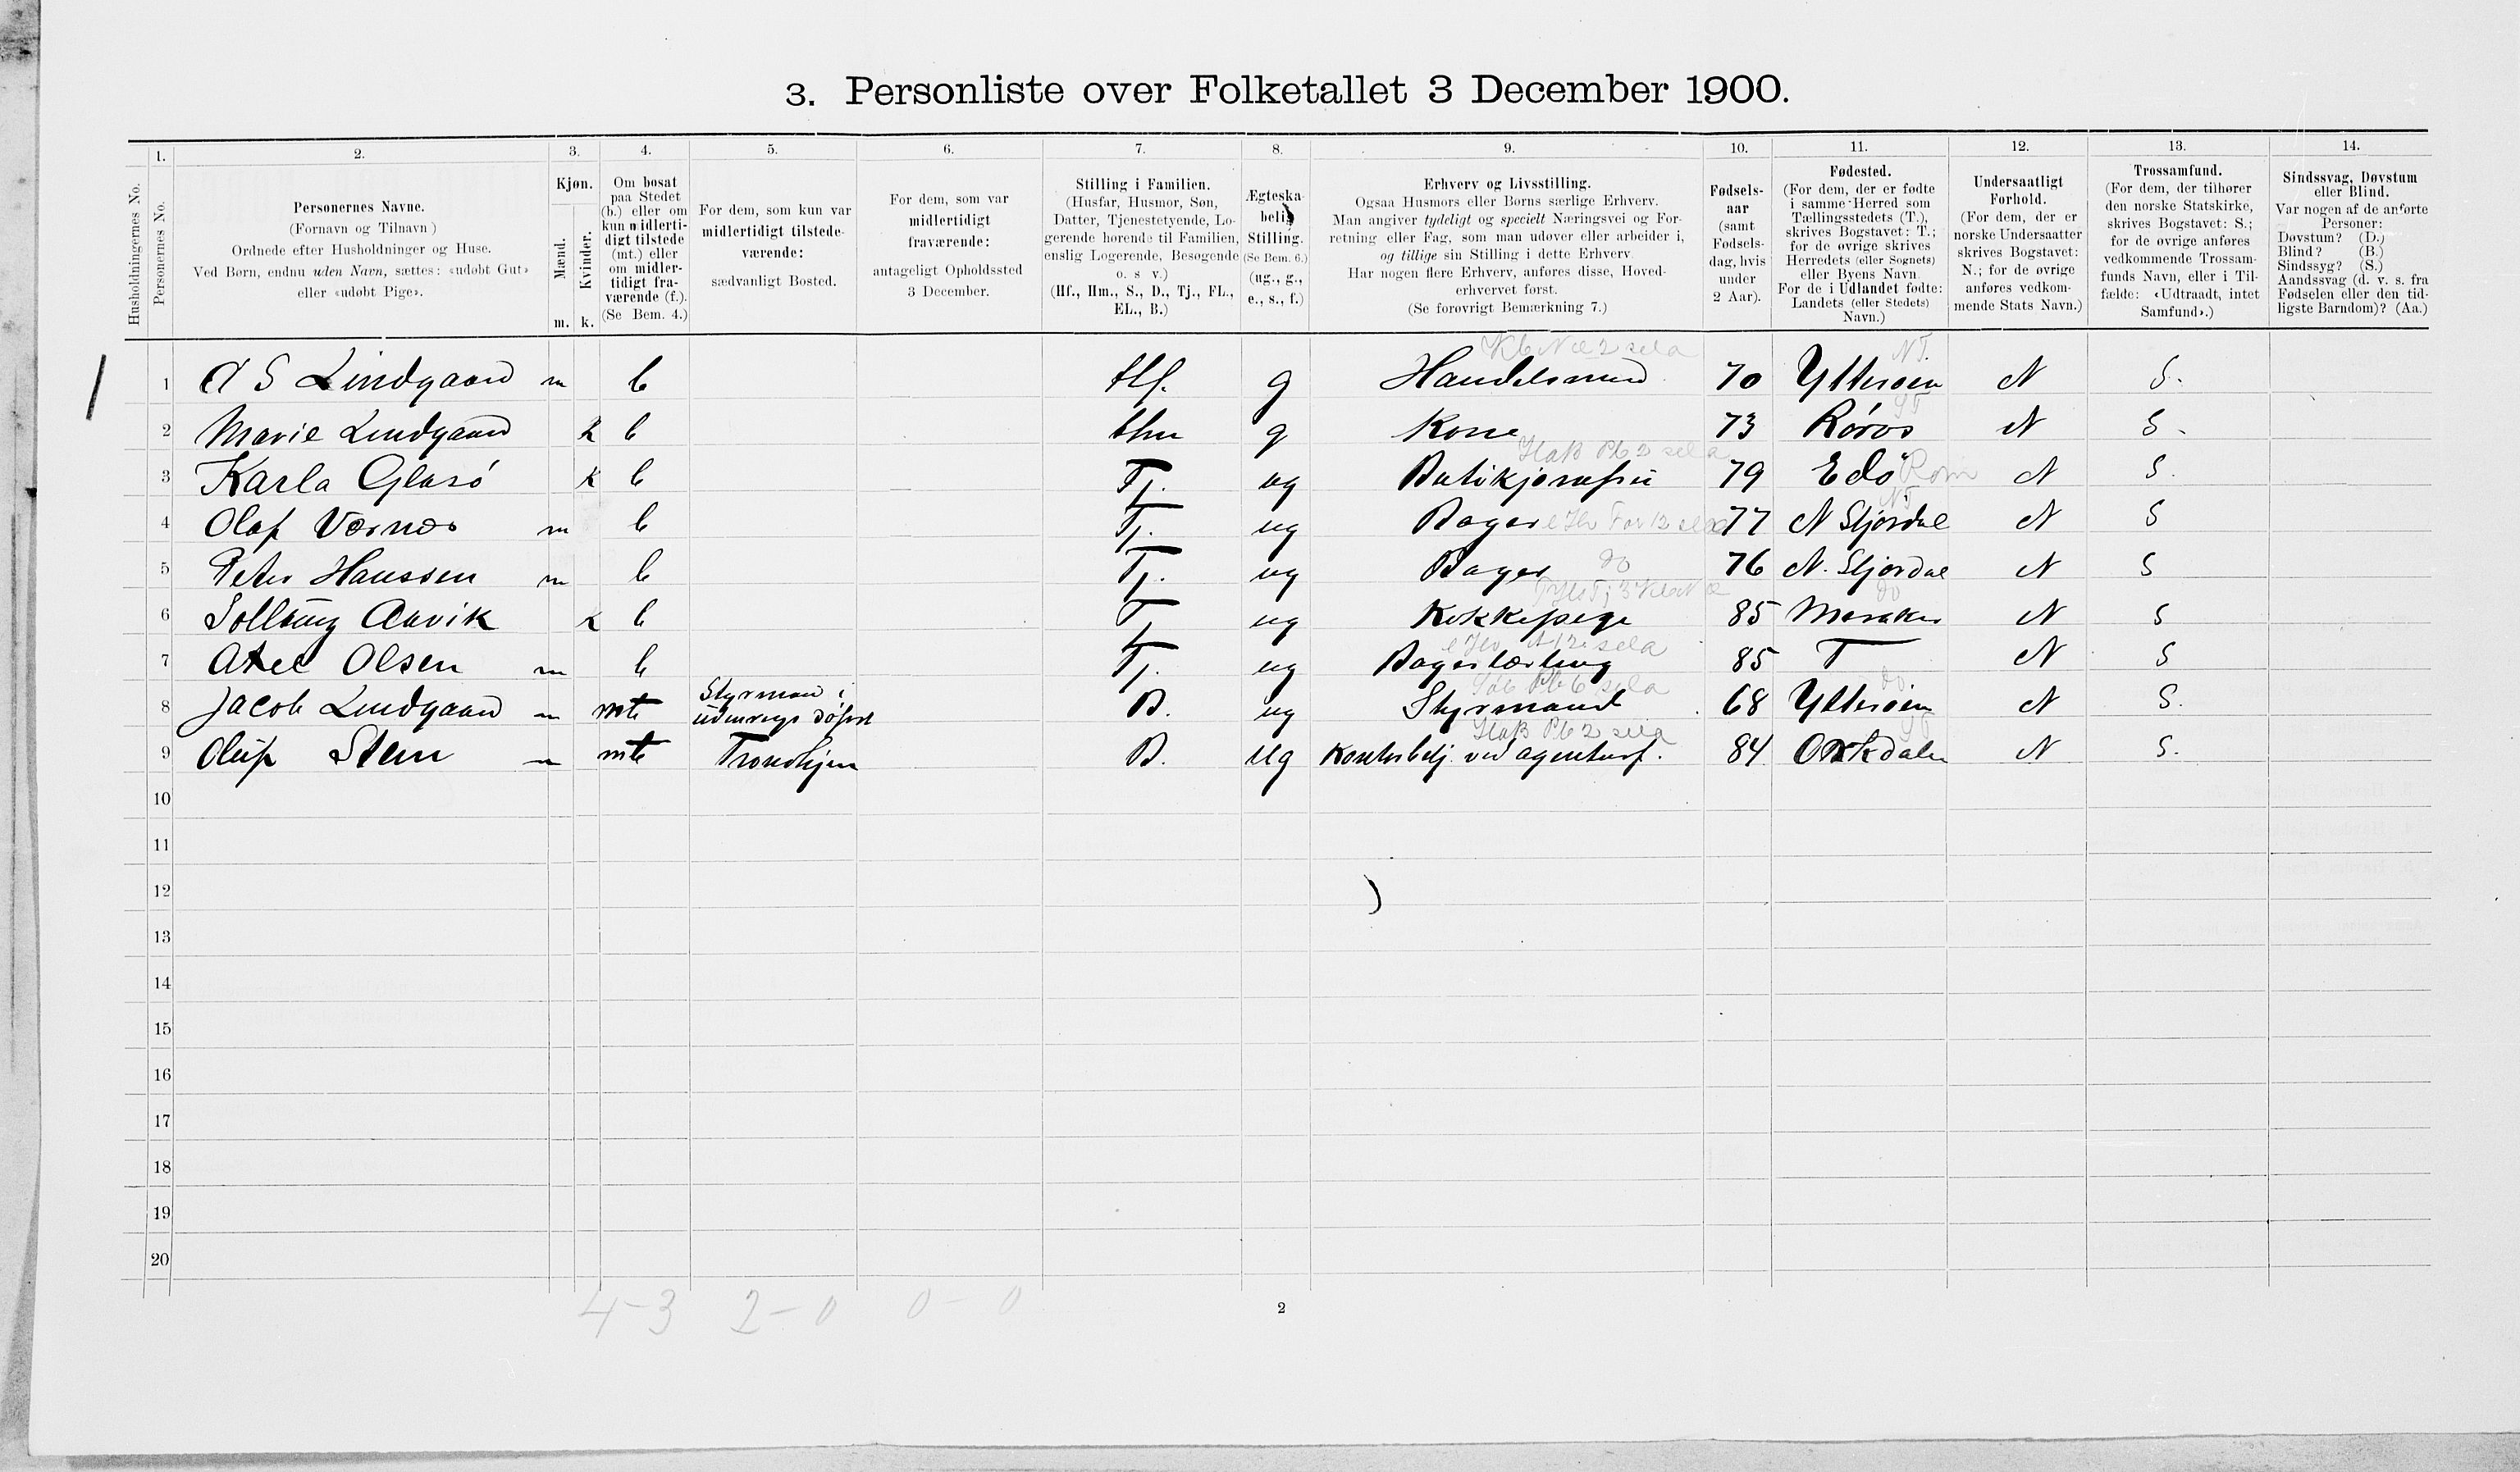 3. Personliste over Folketallet 3 December 1900.
1. 2. 3. 4. 5. 6. 7. 8. 9. 10. 11. 12. 13. 14.
Husholdningernes No.
Personernes No.
Personernes Navne.
(Fornavn og Tilnavn )
Ordnede efter Husholdninger og Huse.
Ved Børn, endnu uden Navn, sættes: «udøbt Gut»
eller «udøbt Pige».
Kjøn.
Mænd.
Kvinder.
m. k.
Om bosat
paa Stedet
(b.) eller om
kun midlerti-
digt tilstede
(mt.) eller
om midler-
tidigt fra-
værende (f.).
(Se Bem. 4.)
For dem, som kun var
midlertidigt tilstede-
værende:
sædvanligt Bosted.
For dem, som var
midlertidigt
fraværende:
antageligt Opholdssted
3 December.
Stilling i Familien.
(Husfar, Husmor, Søn,
Datter, Tjenestetyende, Lo-
gerende hørende til Familien,
enslig Logerende, Besøgende
o. s v.)
(Hf., Hm., S., D., Tj., FL.,
EL., B.)
Ægteska-
belig
Stilling.
(Se Bem. 6.)
(ug., g.,
e., s., f.)
Erhverv og Livsstilling.
Ogsaa Husmors eller Børns særlige Erhverv.
Man angiver tydeligt og specielt Næringsvei og For-
retning eller Fag, som man udøver eller arbeider i,
og tillige sin Stilling i dette Erhverv.
Har nogen flere Erhverv, anføres disse, Hoved-
erhvervet først.
(Se forøvrigt Bemærkning 7.)
Fødsels-
aar
(samt
Fødsels-
dag, hvis
under
2 Aar).
Fødested.
(For dem, der er fødte
i samme Herred som
Tællingsstedets (T.),
skrives Bogstavet: T.;
for de øvrige skrives
Herredets (eller Sognets)
eller Byens Navn.
For de i Udlandet fødte:
Landets (eller Stedets)
Navn.)
Undersaatligt
Forhold.
(For dem, der er
norske Undersaatter
skrives Bogstavet:
N.; for de øvrige
anføres vedkom-
mende Stats Navn.)
Trossamfund.
(For dem, der tilhører
den norske Statskirke,
skrives Bogstavet: S.;
for de øvrige anføres
vedkommende Trossam-
funds Navn, eller i Til-
fælde: «Udtraadt, intet
Samfund».)
Sindssvag, Døvstum
eller Blind.
Var nogen af de anførte
Personer:
Døvstum? (D.)
Blind? (B.)
Sindssyg? (S.)
Aandssvag (d. v. s. fra
Fødselen eller den tid-
ligste Barndom)? (Aa.)
1 A S Lindgaard m b Hf. g Handelsmand 70 Ytterøen N.T. N S.
2 Marie Lindgaard k b Hm g Kone 73 Røros ST N S.
3 Karla Glasø k b Tj. ug Butikjomfru 79 Edø Rom N S.
4 Olaf Værnes m b Tj. ug Bager 77 N Stjørdal NT N S
5 Peter Hanssen m b Tj. ug Bager do 76 N. Stjørdal N S
6 Aavik k b Tj ug Kokkepige 85 Meraker do N S
7 Axel Olsen m b Tj. ug Bagerlærling 85 T N S
8 Jacob Lindgaard m mt Styrmand i udenrigs B. ug Styrmand 68 Ytterøen do N S.
9 Oluf Sten m mt Trondhjem B. ug Kontorbetj. ved agenturf. 84 Orkdalen ST N S.
10
11
12
13
14
15
16
17
18
19
20
4-3 2-0 0-0
2